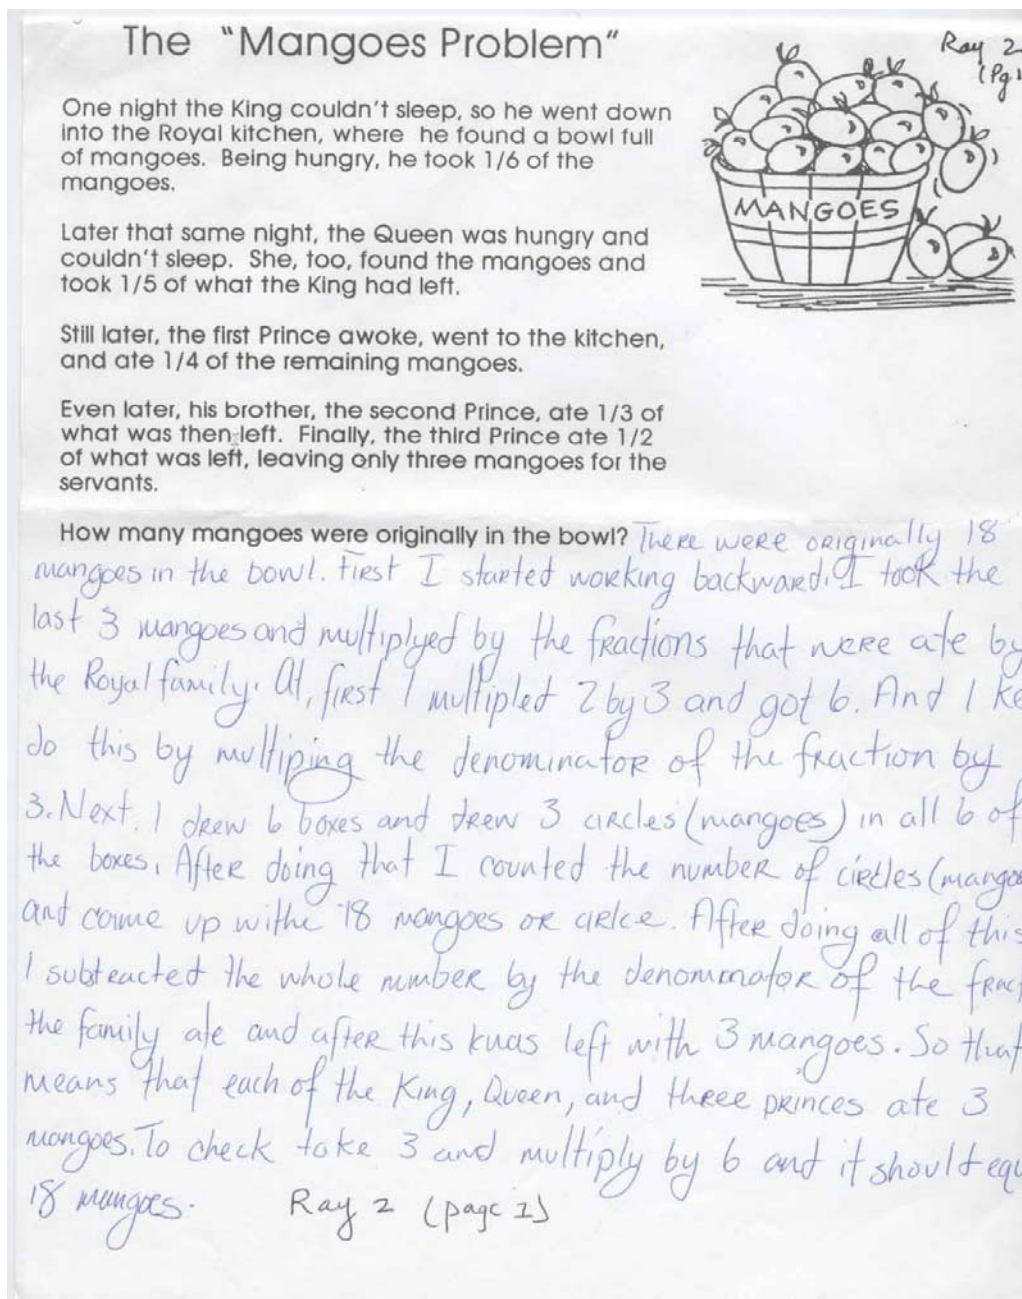 The "Mangoes Problem"
Ray 2
(Pg 1
One night the King couldn't sleep, so he went down
into the Royal kitchen, where he found a bowl full
of mangoes. Being hungry, he took 1/6 of the
mangoes.
MANGOES
Later that same night, the Queen was hungry and
couldn't sleep. She, too, found the mangoes and
took 1/5 of what the King had left.
Still later, the first Prince awoke, went to the kitchen,
and ate 1/4 of the remaining mangoes.
Even later, his brother, the second Prince, ate 1/3 of
what was then left. Finally, the third Prince ate 1/2
of what was left, leaving only three mangoes for the
servants.
How many mangoes were originally in the bowl? There were originally 18
mangoes in the bowl. First I started working backward. I took the
last 3 mangoes and multiplyed by the fractions that were ate by
the Royal family. At, first I multipled 2 by 3 and got 6. And I ke
do this by multiping the denominator of the fraction by
3. Next, I drew 6 boxes and drew 3 circles (mangoes) in all 6 of
the boxes. After doing that I counted the number of circles (mango
and came up withe 18 mangoes or cirlce. After doing all of this
I subtracted the whole number by the denominator of the frac
the family ate and after this I was left with 3 mangoes. So that
means that each of the King, Queen, and three princes ate 3
mangoes. To check take 3 and multiply by 6 and it should equ
18 mangoes.
Ray 2 (page 1)